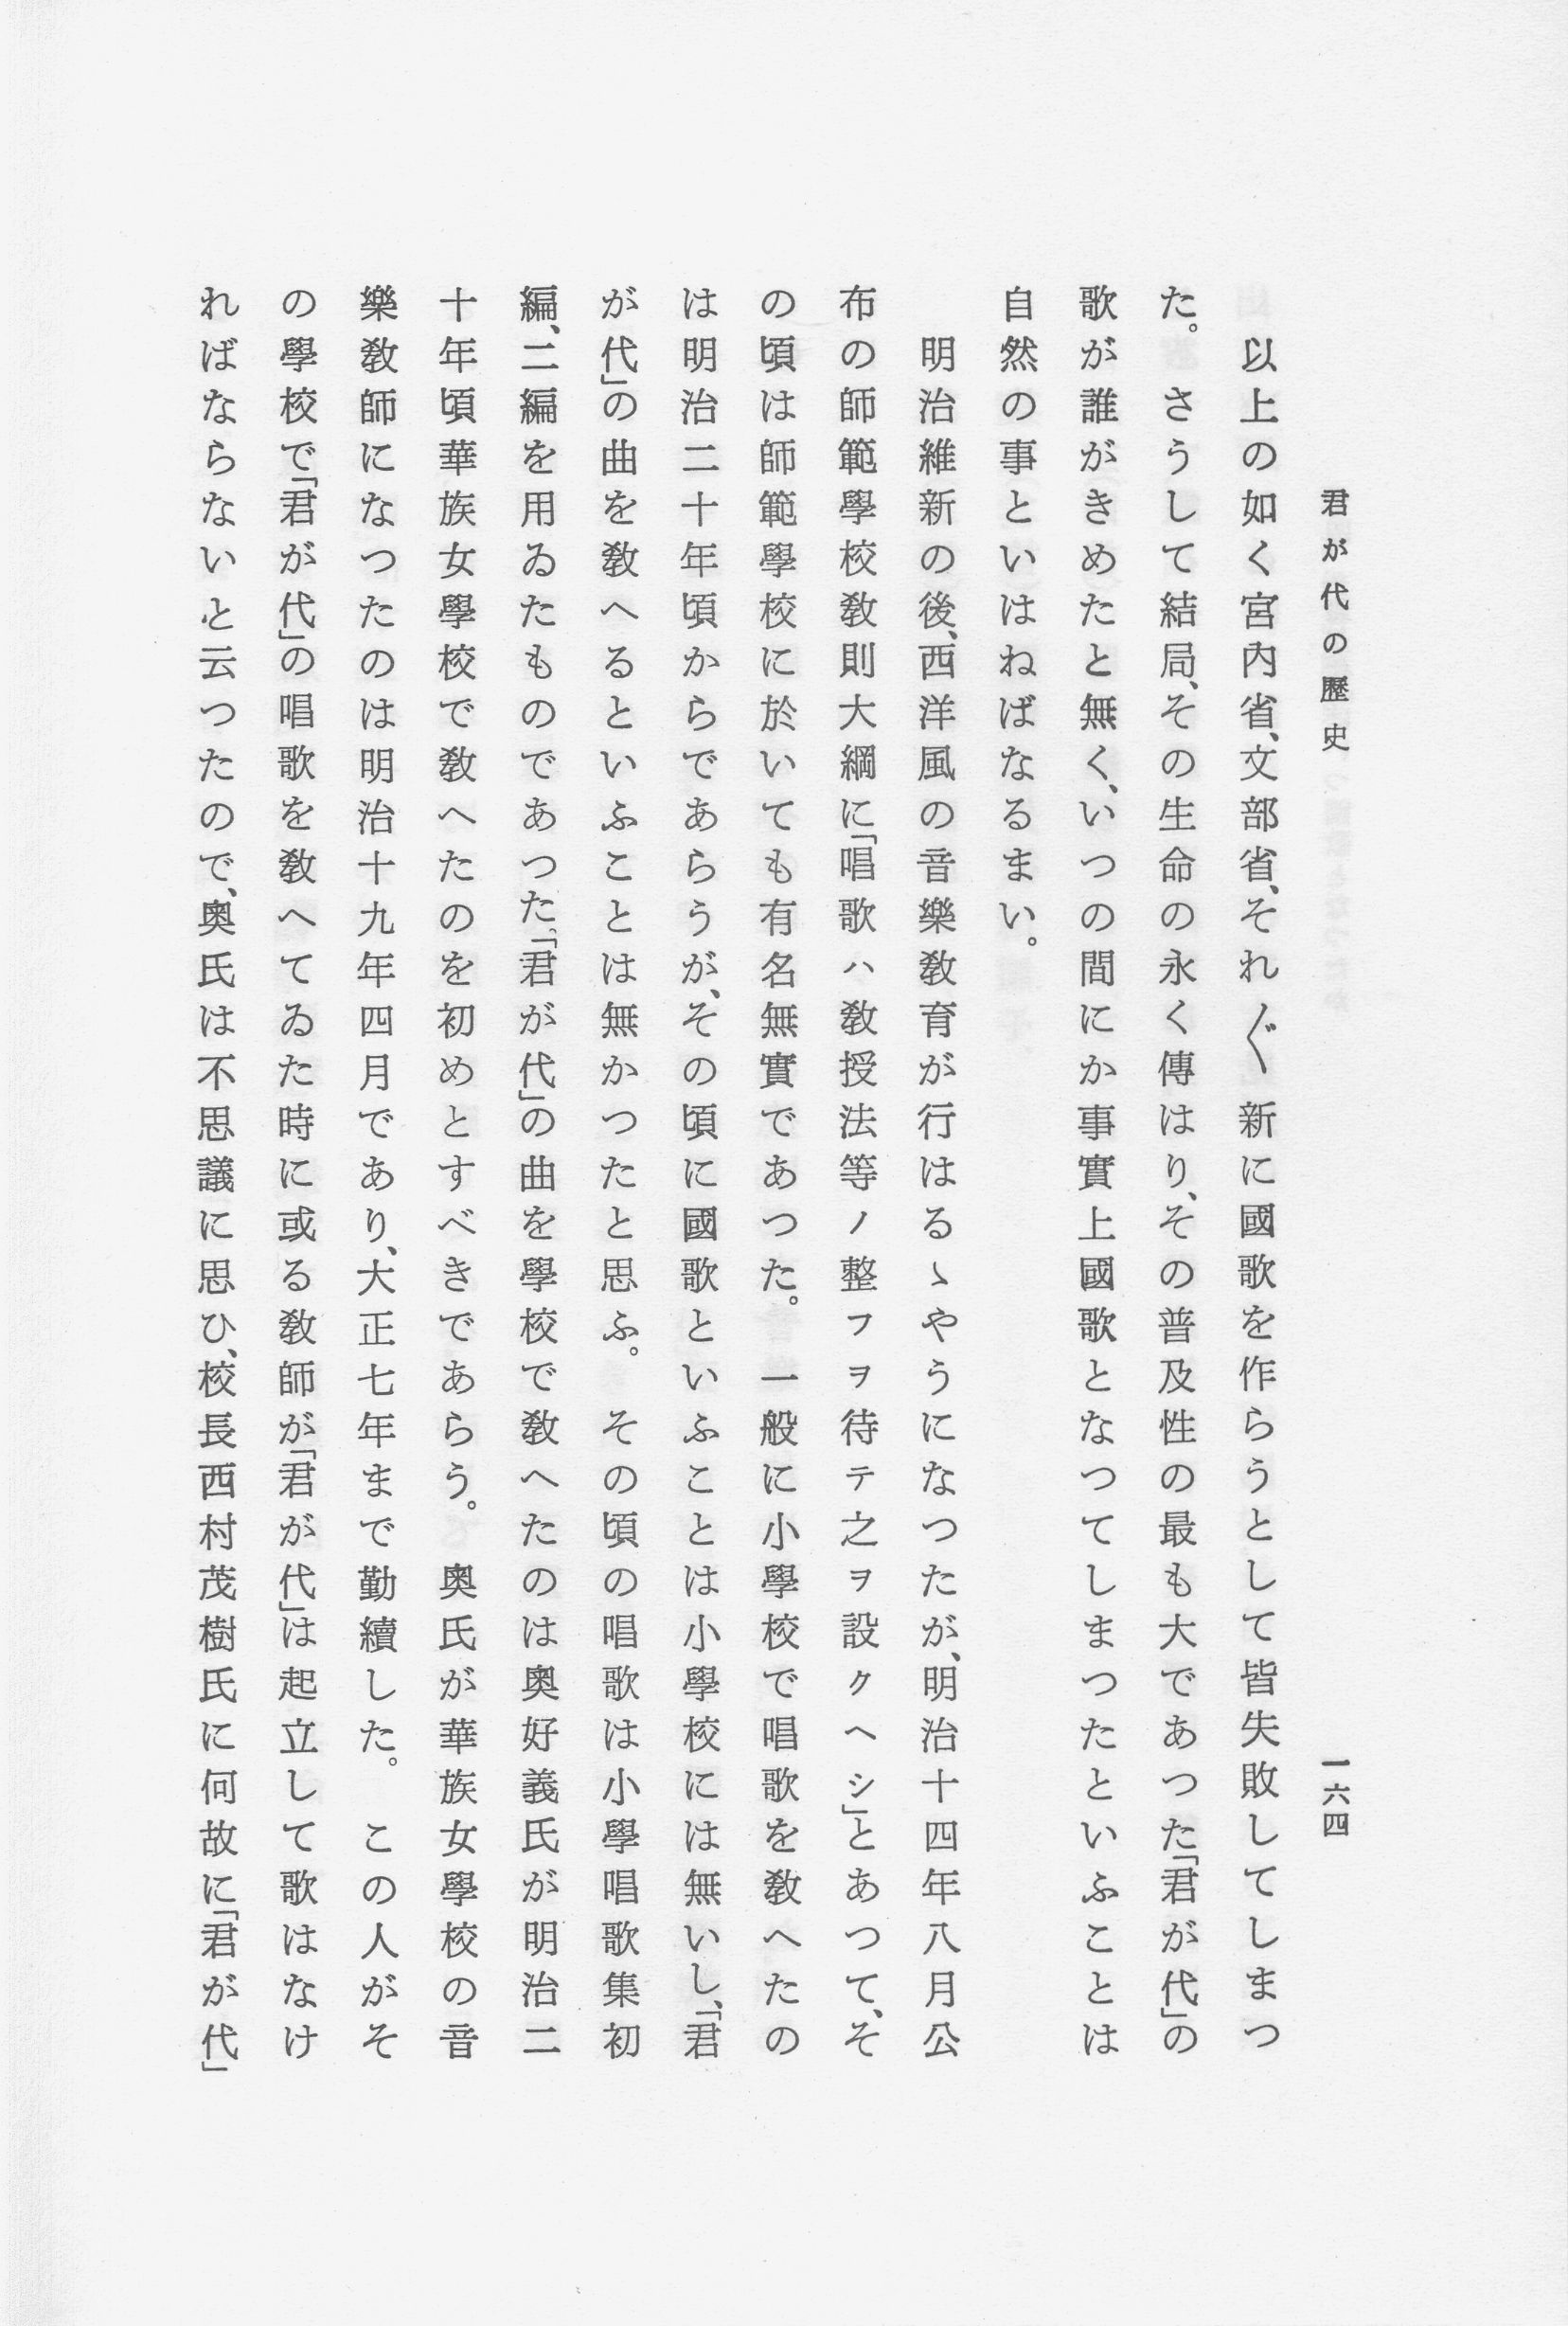 君が代の歷史
一六四
以上の如く宮內省、文部省、それ〲新に國歌を作らうとして皆失敗してしまつ
た。さうして結局、その生命の永く傳はり、その普及性の最も大であつた「君が代」の
歌が誰がきめたと無く、いつの間にか事實上國歌となつてしまつたといふことは
自然の事といはねばなるまい。
明治維新の後、西洋風の音樂敎育が行はるゝやうになつたが、明治十四年八月公
布の師範學校敎則大綱に「唱歌ハ敎授法等ノ整フヲ待テ之ヲ設クヘシ」とあつて、そ
の頃は師範學校に於いても有名無實であつた。一般に小學校で唱歌を敎へたの
は明治二十年頃からであらうが、その頃に國歌といふことは小學校には無いし、「君
が代」の曲を敎へるといふことは無かつたと思ふ。その頃の唱歌は小學唱歌集初
編、二編を用ゐたものであつた。「君が代」の曲を學校で敎へたのは奧好義氏が明治二
十年頃華族女學校で敎へたのを初めとすべきであらう。奧氏が華族女學校の音
樂敎師になつたのは明治十九年四月であり、大正七年まで勤續した。この人がそ
の學校で「君が代」の唱歌を敎へてゐた時に或る敎師が「君が代」は起立して歌はなけ
ればならないと云つたので、奧氏は不思議に思ひ、校長西村茂樹氏に何故に「君が代」